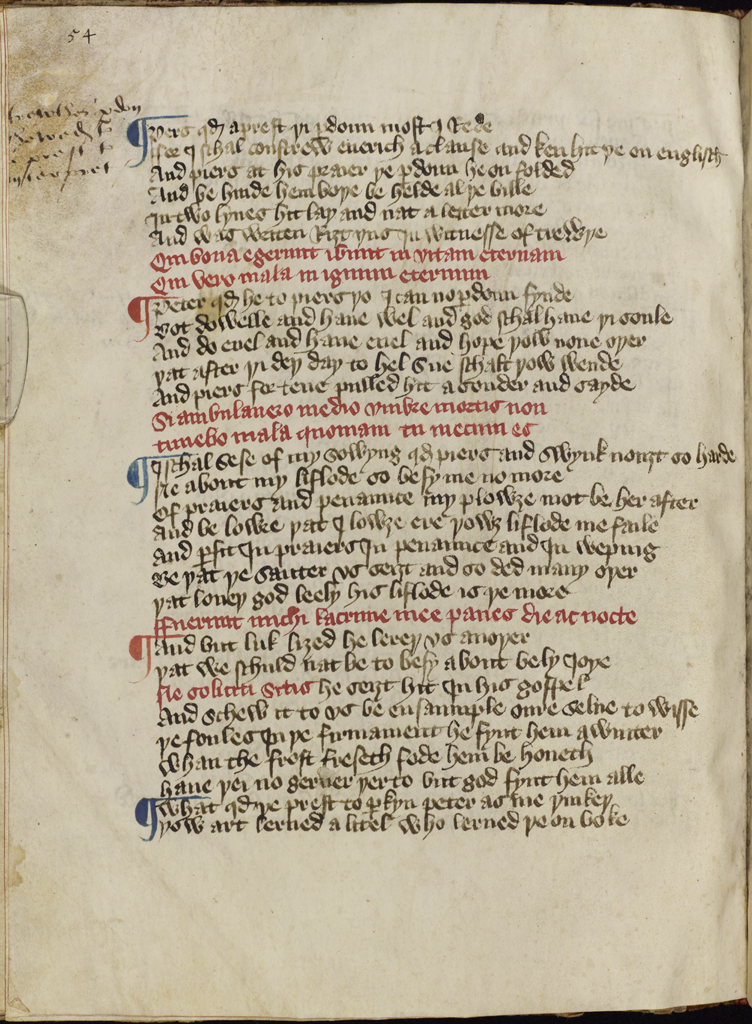 54
Pers qd a prest þi pdoun most I Rede
ffor I schal constrew euerich a clause and ken hit þe on englisch
And piers at his praier þe pdoun he on folded
And be hinde hem boþe be helde al þe bille
In two lynes hit lay and nat a letter more
And was writen Rizt þus In witnesse of trewþe
Qui bona egerunt ibunt in vitam eternam
Qui vero mala in ignem eternum
Peter qd he to piers þo I can no pdoun fynde
Bot do welle and haue wel and god schal haue þi soule
And do euel and haue euel and hope þow none oþer
þat after þi deþ day to hel sue schalt þow wende
And piers for tene pulled hit a sonder and sayde
Si ambulauero medio vmbre mortis non
timebo mala quoniam tu mecum es
I schal sese of my sowyng qd piers and swynk nouzt so harde
Ne about my liflode so besy me no more
Of praiers and penaunce my plowze mot be her after
And be lowre þat I lowze ere þowz liflode me faile
And pfit In praiers In penaunce and In weping
Be þat þe sauter vs seizt and so ded many oþer
þat loueþ god leely his liflode is þe more
ffuerunt michi lacrime mee panes die ac nocte
And but luk lized he lereþ vs anoþer
þat we schuld nat be to besy about bely ioþe
Ne soliciti sitis he seizt hit In his gospel
And schew it to vs be ensaumple oure selue to wisse
þe foules In þe firmament he fynt hem a wynter
Whan the frost freseth fode hem be houeth
haue þei no gerner þerto but god fynt hem alle
What qd þe prest to pkyn peter as me þinkeþ
þow art lerned a litel who lerned þe on boke